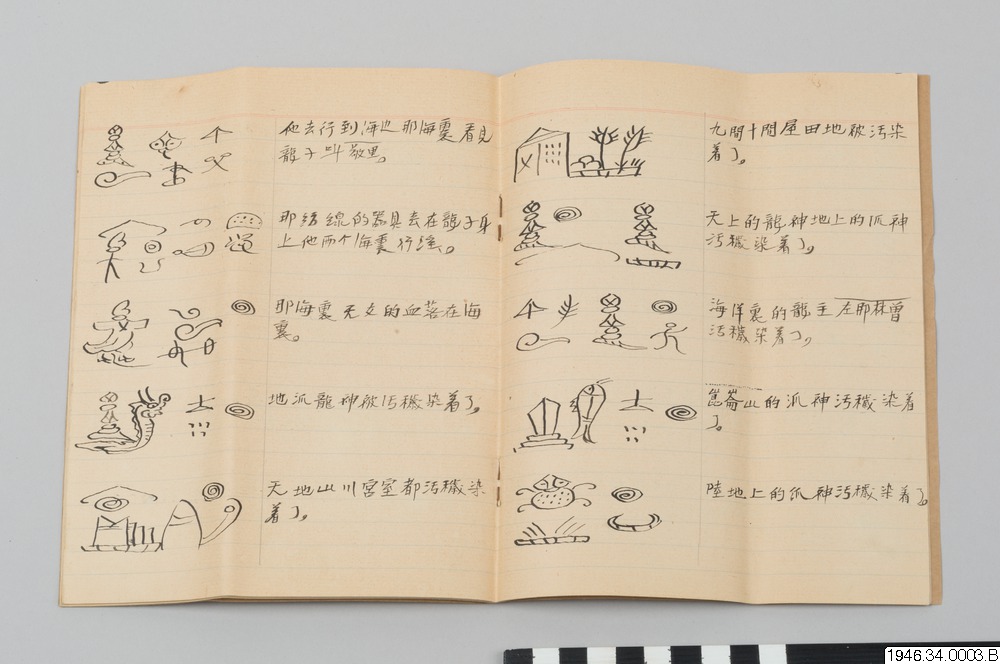 他去行到海边那海裏看見
龍子叫敬里。
那结線的器具去在龍子身
上他两个海裏行淫、。
那海裏天女的血落在海
裏。
地派龍神被污穢染着了。
天地山川宮室都污穢染
着了。
九間十間屋田地被污染
着了。
天上的龍神地上的派神
污穢染着了。
海洋裏的龍王左那林曾
污穢染着了,
崑崙山的派神污穢染着
了。
陸地上的派神污穢染着了。
1946.34.0003.B